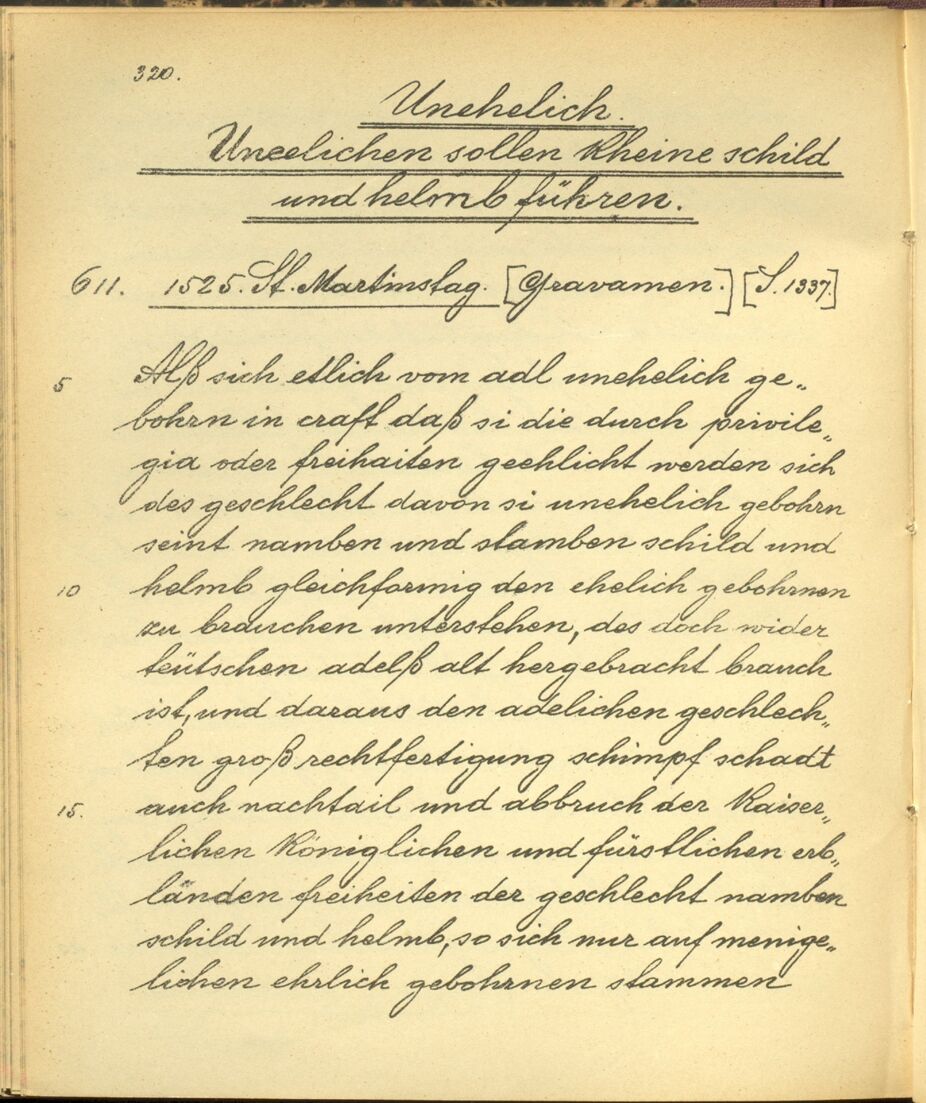 320.
Unehelich.
Uneelichen sollen kheine schild
und helmb führen.
611. 1525. St. Martinstag. [Gravamen.] [S. 1337.]
5 Alß sich etlich vom adl unehelich ge„
bohrn in craft daß si die durch privile„
gia oder freihaiten geehlicht werden sich
des geschlecht davon si unehelich gebohrn
seint namben und stamben schild und
10 helmb gleichformig den ehelich gebohrnen
zu brauchen unterstehen, des doch wider
teütschen adelß alt hergebracht brauch
ist, und daraus den adelichen geschlech„
ten groß rechtfertigung schimpf schadt
15. auch nachtail und abbruch der Kaiser„
lichen Königlichen und fürstlichen erb„
länden freiheiten der geschlecht namben
schild und helmb, so sich nur auf menige„
lichen ehrlich gebohrnen stammen